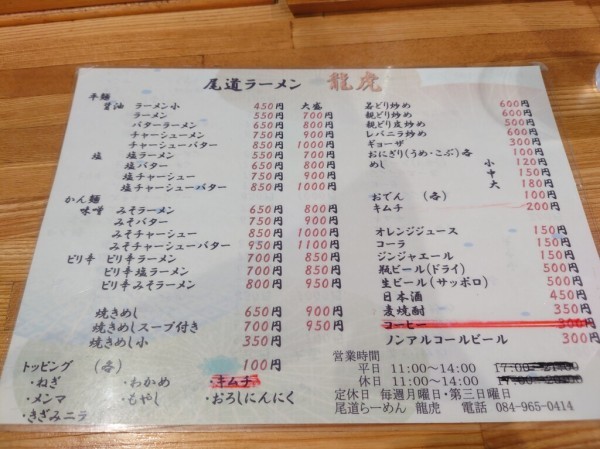 尾道ラーメン 龍虎
平麺
醤油 ラーメン小 450円 大盛
ラーメン 550円 700円
バターラーメン 650円 800円
チャーシューメン 750円 900円
チャーシューバター 850円 1000円
塩 塩ラーメン 550円 700円
塩バター 650円 800円
塩チャーシュー 750円 900円
塩チャーシューバター 850円 1000円
かん麺
味噌 みそラーメン 650円 800円
みそバター 750円 900円
みそチャーシュー 850円 1000円
みそチャーシューバター 950円 1100円
ピリ辛 ピリ辛ラーメン 700円 850円
ピリ辛塩ラーメン 700円 850円
ピリ辛みそラーメン 800円 950円
焼きめし 650円 900円
焼きめしスープ付き 700円 950円
焼きめし小 350円
トッピング (各) 100円
・ねぎ ・わかめ ・キムチ
・メンマ ・もやし ・おろしにんにく
・きざみニラ
若どり炒め 600円
親どり炒め 600円
親どり皮炒め 500円
レバニラ炒め 600円
ギョーザ 300円
おにぎり(うめ・こぶ)各 100円
めし 小 120円
中 150円
大 180円
おでん (各) 100円
キムチ 200円
オレンジジュース 150円
コーラ 150円
ジンジャエール 150円
瓶ビール(ドライ) 500円
生ビール(サッポロ) 500円
日本酒 450円
麦焼酎 350円
コーヒー 300円
ノンアルコールビール 300円
営業時間
平日 11:00～14:00
休日 11:00～14:00
定休日 毎週月曜日・第三日曜日
尾道らーめん 龍虎 電話 084-965-0414